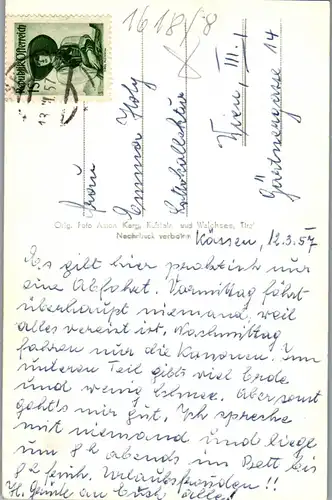 1618/8
Republik Österreich
13. III. 57
Frau
Emma Holy
Wien, III.
Gärtnergasse 14
Orig. Foto Anton Karg, Kufstein und Walchsee, Tirol
Nachdruck verboten
Kössen, 12.3.57
Es gilt hier praktisch nur
eine Abfahrt. Vormittag fährt
überhaupt niemand, weil
alles vereist ist. Nachmittag
fahren nur die Kanonen. Im
unteren Teil gibts viel Erde
und wenig Schnee. Aber sonst
geht's mir gut. Ich spreche
mit niemand und liege
um ½8 abends im Bett bis
½8 früh. Urlaubsfreuden!!
H. Grüße an Euch alle!